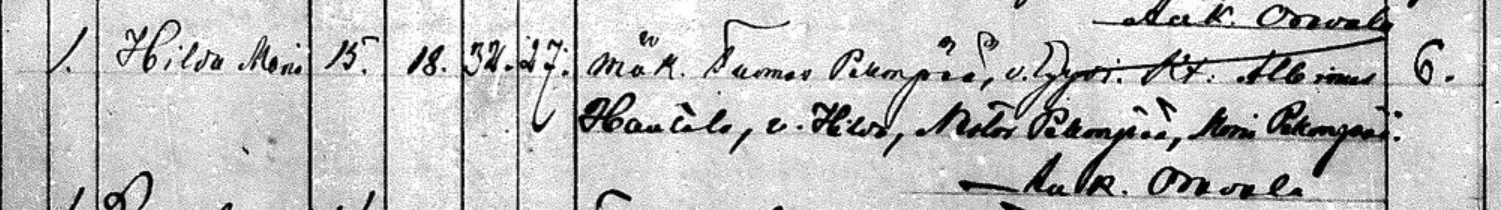 Aa K. Orrvala
1. Hilda Maria 15. 18. 32. 27. Mäk. Tuomas Pekonpää, v. Kt. Albinus 6.
Hautala, v. Hilda, Nestor Pekonpää, Maria Pekonpää.
Aa K. Orrvala